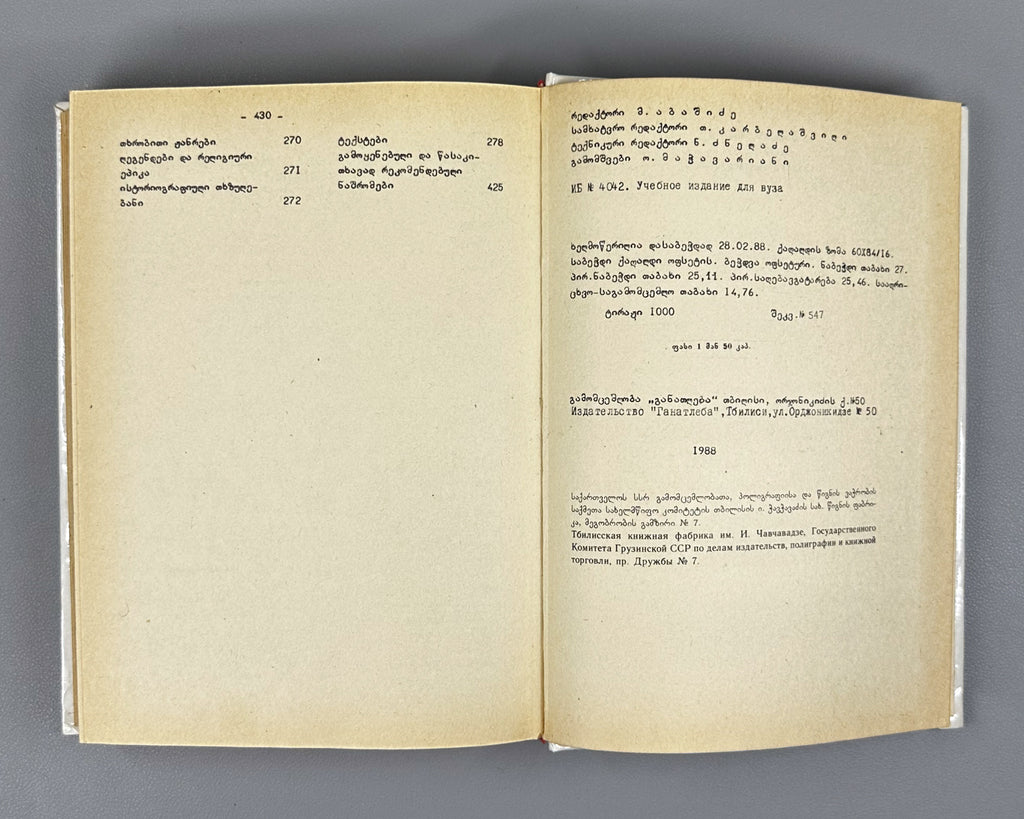 - 430 -
თხრობითი ჟანრები 270
ლეგენდები და რელიგიური
ეპიკა 271
ისტორიოგრაფიული თხზულე-
ბანი 272
ტექსტები 278
გამოყენებული და წასაკი-
თხავად რეკომენდებული
ნაშრომები 425
რედაქტორი მ. აბაშიძე
სამხატვრო რედაქტორი თ. კარბელაშვილი
ტექნიკური რედაქტორი ნ. ძნელაძე
გამომშვები ო. მაჭავარიანი
ИБ № 4042. Учебное издание для вуза
ხელმოწერილია დასაბეჭდად 28.02.88. ქაღალდის ზომა 60X84/16.
საბეჭდი ქაღალდი ოფსეტის. ბეჭდვა ოფსეტური. ნაბეჭდი თაბახი 27.
პირ.ნაბეჭდი თაბახი 25,11. პირ.საღებავგატარება 25,46. სააღრი-
ცხვო-საგამომცემლო თაბახი 14,76.
ტირაჟი 1000 შეკვ.№ 547
ფასი 1 მან 50 კაპ.
გამომცემლობა „განათლება“ თბილისი, ორჯონიკიძის ქ.№50
Издательство "Ганатлеба",Тбилиси,ул.Орджоникидзе № 50
1988
საქართველოს სსრ გამომცემლობათა, პოლიგრაფიისა და წიგნის ვაჭრობის
საქმეთა სახელმწიფო კომიტეტის თბილისის ი. ჭავჭავაძის სახ. წიგნის ფაბრი-
კა, მეგობრობის გამზირი № 7.
Тбилисская книжная фабрика им. И. Чавчавадзе, Государственного
Комитета Грузинской ССР по делам издательств, полиграфии и книжной
торговли, пр. Дружбы № 7.